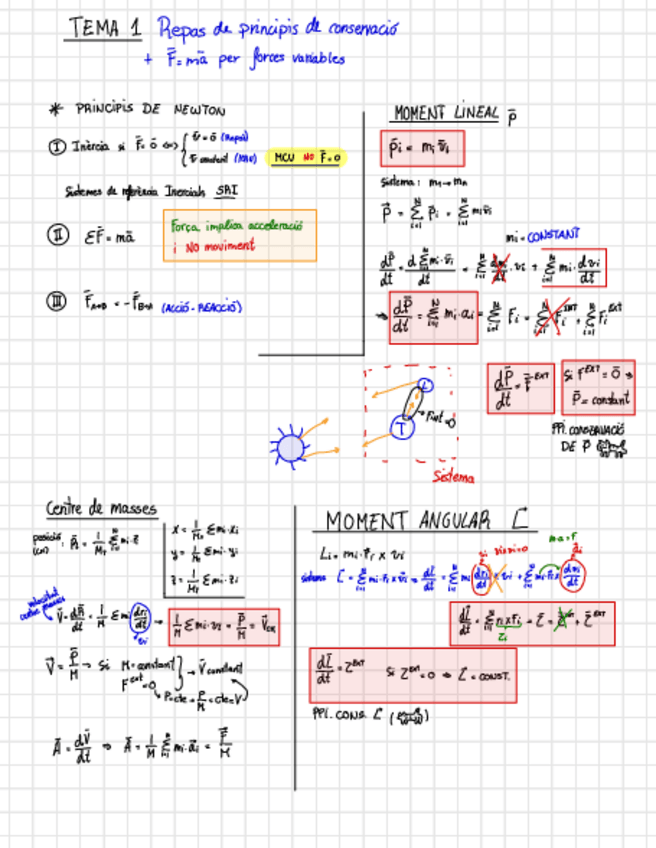 TEMA 1 Repas de principis de conservació
+ F̄=mā per forces variables
* PRINCIPIS DE NEWTON
I Inèrcia si F̄=ō <=> { v̄=ō (Repòs)
v̄ constant (MRU) MCU NO F̄=0
Sistemes de referència Inercials SRI
II ΣF̄=mā
Força implica acceleració
i NO moviment
III F̄A→B = -F̄B→A (ACCIÓ-REACCIÓ)
MOMENT LINEAL p̄
p̄i = mi v̄i
Sistema: m1→mn
P̄ = Σ p̄i = Σ mi v̄i
mi = CONSTANT
dP̄/dt = d Σ mi·v̄i/dt = Σ dmi/dt · vi + Σ mi · dvi/dt
→ dP̄/dt = Σ mi·ai = Σ Fi = Σ Fi^INT + Σ Fi^EXT
dP̄/dt = F̄^EXT
Si F^EXT = ō →
P̄ = constant
PPI. CONSERVACIÓ
DE P̄
L
T
Fint=0
Sistema
Centre de masses
posició (CM): R̄ = 1/MT Σ mi·r̄i
x = 1/MT Σ mi·xi
y = 1/MT Σ mi·yi
z = 1/MT Σ mi·zi
velocitat centre masses
V̄ = dR̄/dt = 1/M Σ mi dri/dt → 1/M Σ mi·vi = P̄/M = V̄CM
vi
V̄ = P̄/M → Si M=constant
F^ext=0 } → V̄ constant
P=cte → P/M = cte = V
Ā = dV̄/dt => Ā = 1/M Σ mi·āi = F̄/M
MOMENT ANGULAR L̄
Li = mi·r̄i x vi
sistema L̄ = Σ mi·r̄i x v̄i → dL̄/dt = Σ mi dri/dt x vi + Σ mi·r̄i x dvi/dt
vi vi x vi = 0
m·a=F
āi
dL̄/dt = Σ ri x Fi = τ̄ = τ̄^int + τ̄^EXT
τi
dL̄/dt = τ^EXT Si τ^EXT = 0 => L̄ = CONST.
PPI. CONS. L̄